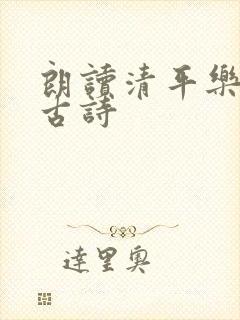 朗讀清平樂
古詩
達里奧